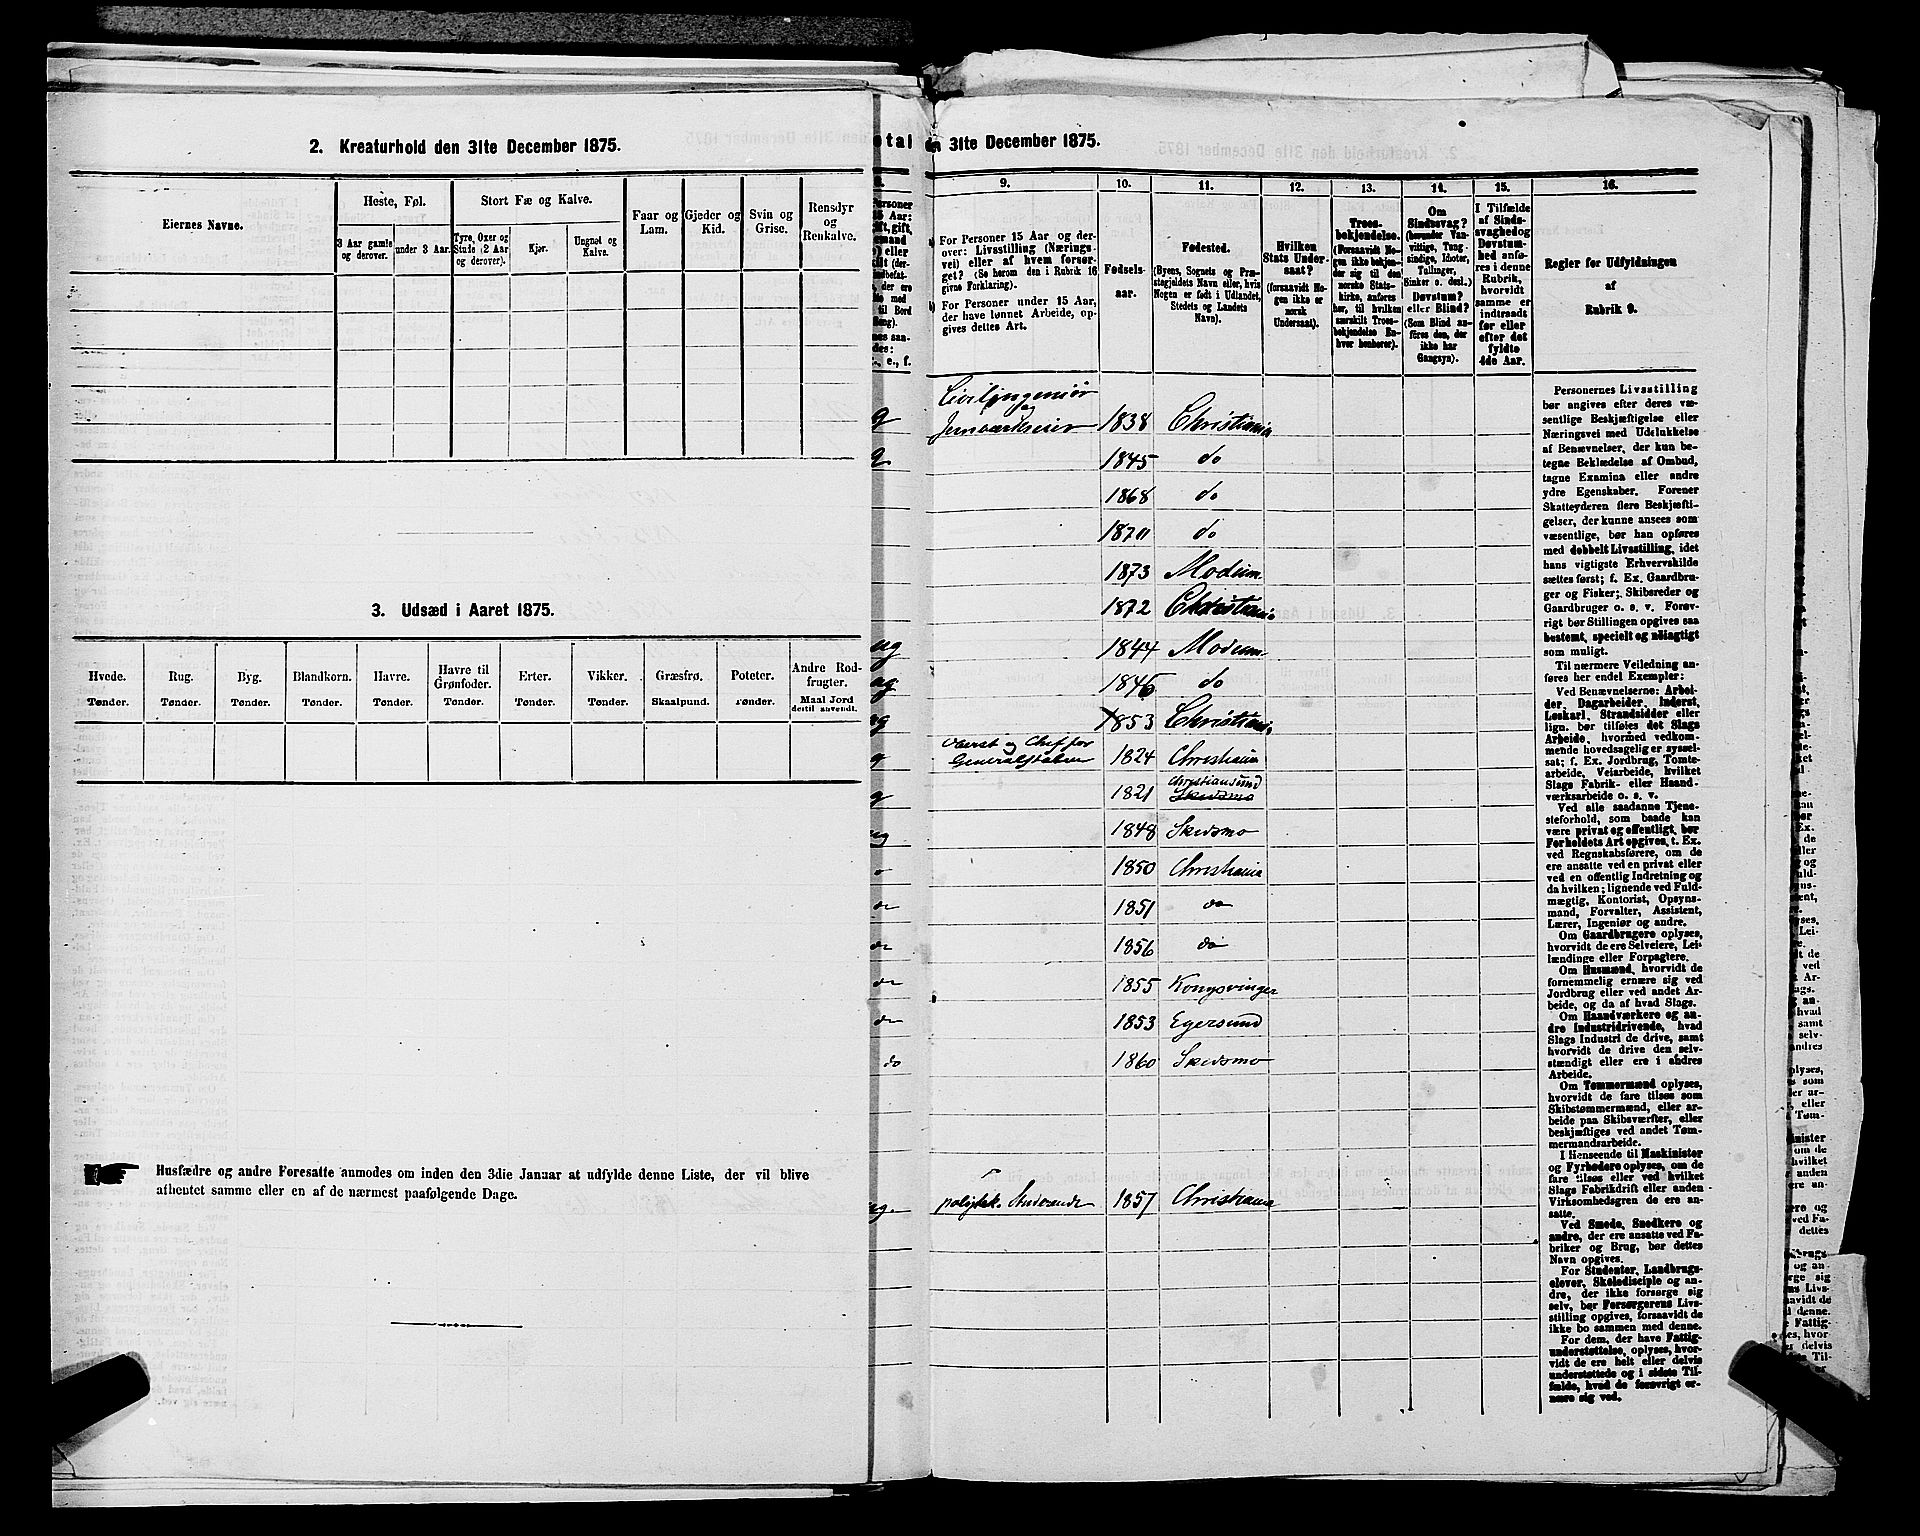 2. Kreaturhold den 31te December 1875.
Eiernes Navne.
Heste, Føl.
Stort Fæ og Kalve.
Faar og Lam.
Gjeder og Kid.
Svin og Grise.
Rensdyr og Renkalve.
3 Aar gamle og derover.
under 3 Aar.
Tyre, Oxer og Stude (2 Aar og derover).
Kjør.
Ungnøt og Kalve.
3. Udsæd i Aaret 1875.
Hvede. Rug. Byg. Blandkorn. Havre. Havre til Grønfoder. Erter. Vikker. Græsfrø. Poteter. Andre Rodfrugter.
Tønder. Tønder. Tønder. Tønder. Tønder. Tønder. Tønder. Tønder. Skaalpund. Tønder. Maal Jord dertil anvendt.
Husfædre og andre Foresatte anmodes om inden den 3die Januar at udfylde denne Liste, der vil blive
afhentet samme eller en af de nærmest paafølgende Dage.
31te December 1875.
9. 10. 11. 12. 13. 14. 15. 16.
a) For Personer 15 Aar og derover: Livsstilling (Næringsvei) eller af hvem forsørget? (Se herom den i Rubrik 16 givne Forklaring).
b) For Personer under 15 Aar, der have lønnet Arbeide, opgives dettes Art.
Fødselsaar.
Fødested.
(Byens, Sognets og Præstegjeldets Navn eller, hvis Nogen er født i Udlandet, Stedets og Landets Navn).
Hvilken Stats Undersaat?
(forsaavidt Nogen ikke er norsk Undersaat).
Troesbekjendelse.
(Forsaavidt Nogen ikke bekjender sig til den norske Statskirke, anføres her, til hvilken særskilt Troesbekjendelse Enhver henhører).
Om Sindssvag?
(herunder Vanvittige, Tungsindige, Idioter, Tullinger, Sinker o. desl.)
Døvstum? eller Blind?
(Som Blind anføres den, der ikke har Gangsyn).
I Tilfælde af Sindssvaghed og Døvstumhed anføres i denne Rubrik, hvorvidt samme er indtraadt før eller efter det fyldte 4de Aar.
Regler for Udfyldningen
af
Rubrik 9.
Civilingeniør
og
Jernværkseier 1838 Christiania
1845 do
1868 do
1870 do
1873 Modum
1872 Christiania
1844 Modum
1846 do
1853 Christiania
Oberst og Chef for
Generalstaben 1824 Christiania
1821 Christiansund
Skedsmo
1848 Skedsmo
1850 Christiania
1851 do
1856 do
1855 Kongsvinger
1853 Egersund
do 1860 Skedsmo
polytek. Studerende 1857 Christiania
Personernes Livsstilling
bør angives efter deres væ-
sentlige Beskjæftigelse eller
Næringsvei med Udelukkelse
af Benævnelser, der kun be-
tegne Beklædelse af Ombud,
tagne Examina eller andre
ydre Egenskaber. Forener
Skatteyderen flere Beskjæfti-
gelser, der kunne ansees som
væsentlige, bør han opføres
med dobbelt Livsstilling, idet
hans vigtigste Erhvervskilde
sættes først; f. Ex. Gaardbru-
ger og Fisker; Skibsreder og
Gaardbruger o. s. v. Forøv-
rigt bør Stillingen opgives saa
bestemt, specielt og nøiagtigt
som muligt.
Til nærmere Veiledning an-
føres her endel Exempler:
Ved Benævnelserne: Arbei-
der, Dagarbeider, Inderst,
Løskarl, Strandsidder eller
lign. bør tilføies det Slags
Arbeide, hvormed vedkom-
mende hovedsagelig er syssel-
sat; f. Ex. Jordbrug, Tomte-
arbeide, Veiarbeide, hvilket
Slags Fabrik- eller Haand-
værksarbeide o. s. v.
Ved alle saadanne Tjene-
steforhold, som baade kan
være privat og offentligt, bør
Forholdets Art opgives, t. Ex.
ved Regnskabsførere, om de
ere ansatte ved en privat eller
ved en offentlig Indretning og
da hvilken; lignende ved Fuld-
mægtig, Kontorist, Opsyns-
mand, Forvalter, Assistent,
Lærer, Ingeniør og andre.
Om Gaardbrugere oplyses,
hvorvidt de ere Selveiere, Lei-
lændinge eller Forpagtere.
Om Husmænd, hvorvidt de
fornemmelig ernære sig ved
Jordbrug eller ved andet Ar-
beide, og da af hvad Slags.
Om Haandværkere og an-
dre Industridrivende, hvad
Slags Industri de drive, samt
hvorvidt de drive den selv-
stændigt eller ere i andres
Arbeide.
Om Tømmermænd oplyses,
hvorvidt de fare tilsøs som
Skibstømmermænd, eller ar-
beide paa Skibsværfter, eller
beskjæftiges ved andet Tøm-
mermandsarbeide.
I Henseende til Maskinister
og Fyrbødere oplyses, om de
fare tilsøs eller ved hvilket
Slags Fabrikdrift eller anden
Virksomhedsgren de ere an-
satte.
Ved Smede, Snedkere og
andre, der ere ansatte ved Fa-
briker og Brug, bør dettes
Navn opgives.
For Studenter, Landbrugs-
elever, Skoledisciple og an-
dre, der ikke forsørge sig
selv, bør Forsørgerens Livs-
stilling opgives, forsaavidt de
ikke bo sammen med denne.
For dem, der have Fattig-
understøttelse, oplyses, hvor-
vidt de ere helt eller delvis
understøttede og i sidste Til-
fælde, hvad de forøvrigt er-
nære sig ved.